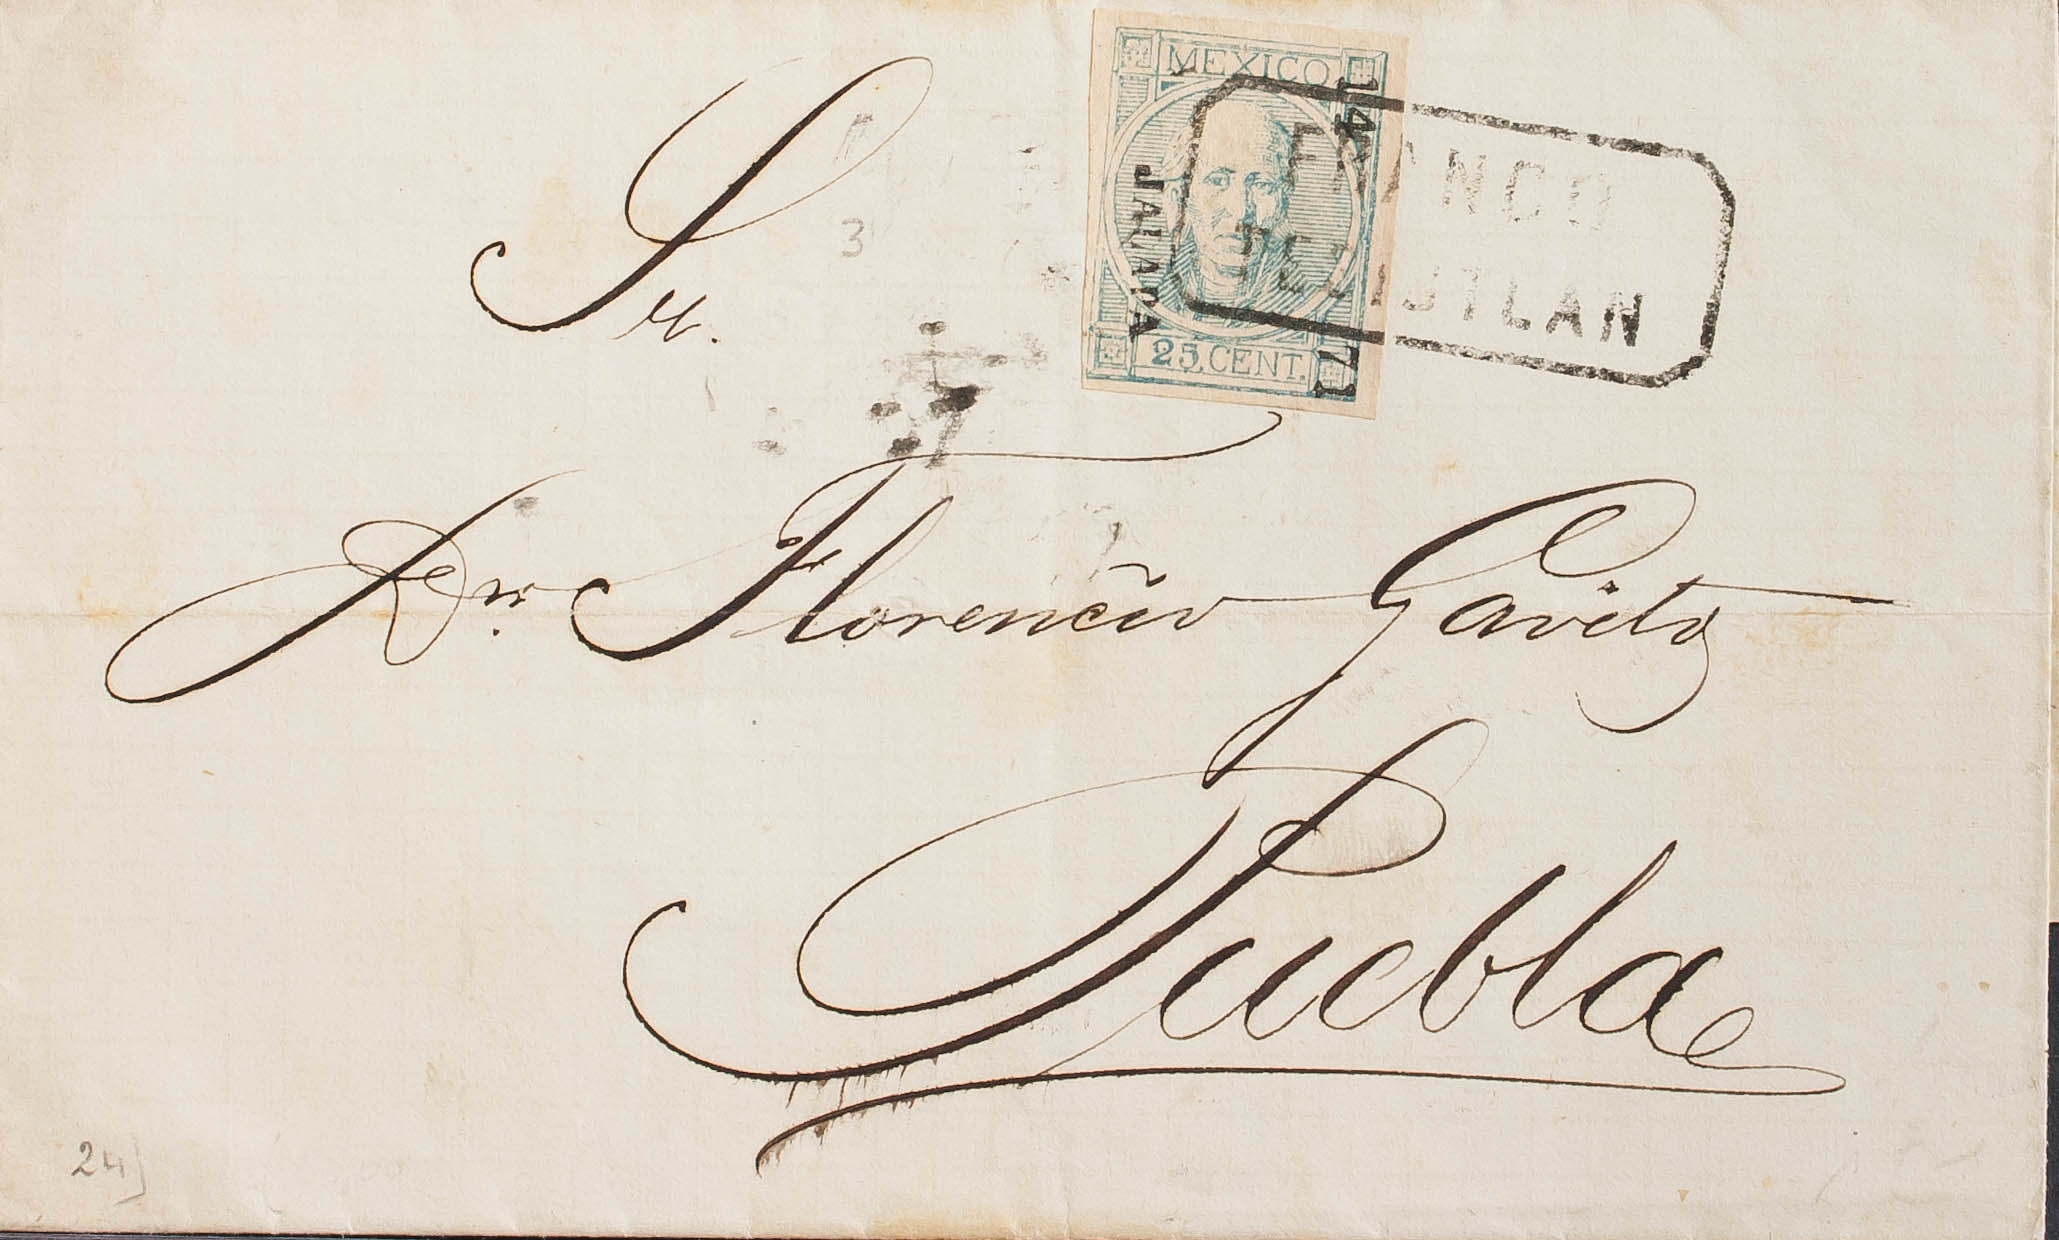 MEXICO
14 71
JALAPA
25.CENT.
FRANCO
TEZIUTLAN
3
Sr.
Dn. Florencio Gavito
Puebla
24)